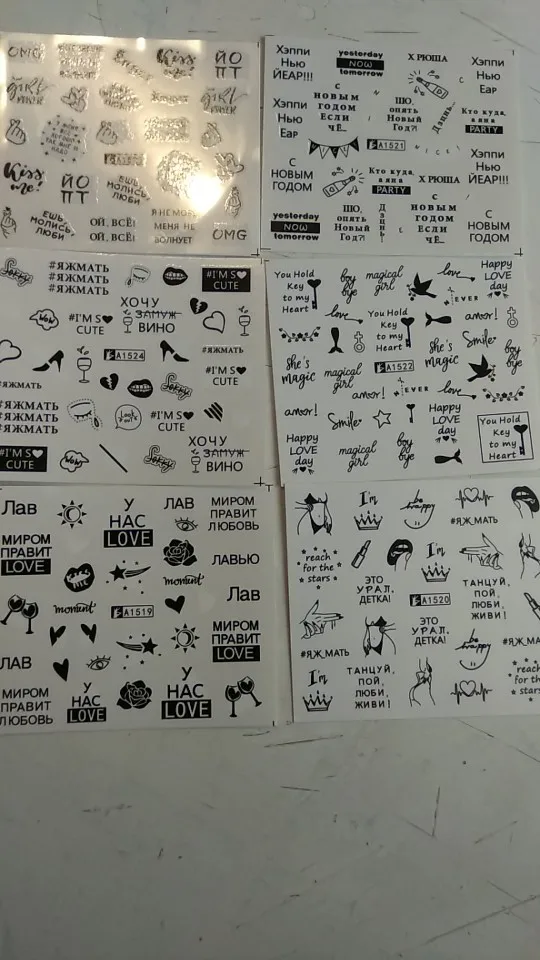 OMG
Kiss
me!
ЙО
ПТ
GIRL
POWER
GIRL
POWER
Kiss
me!
ЙО
ПТ
ЕШЬ,
МОЛИСЬ,
ЛЮБИ
ЕШЬ,
МОЛИСЬ,
ЛЮБИ
ОЙ, ВСЁ!
ОЙ, ВСЁ!
Я НЕ МОГУ
МЕНЯ НЕ
ВОЛНУЕТ
OMG
Хэппи
Нью
ЙЕАР!!!
yesterday
NOW
tomorrow
Х РЮША
Хэппи
Нью
Еар
Хэппи
Нью
Еар
С
НОВЫМ
ГОДОМ
ЕСЛИ
ЧЁ...
ШО,
опять
Новый
Год?!
Дзинь...
Кто куда,
а я на
PARTY
A1521
NICE
Хэппи
Нью
ЙЕАР!!!
С
НОВЫМ
ГОДОМ
Кто куда,
а я на
PARTY
Х РЮША
yesterday
NOW
tomorrow
ШО,
опять
Новый
Год?!
С
НОВЫМ
ГОДОМ
ЕСЛИ
ЧЁ...
С
НОВЫМ
ГОДОМ
#ЯЖМАТЬ
#ЯЖМАТЬ
#ЯЖМАТЬ
#I'M S
CUTE
ХОЧУ
ЗАМУЖ
ВИНО
Wow
#I'M S
CUTE
A1524
#ЯЖМАТЬ
#ЯЖМАТЬ
#I'M S
CUTE
#ЯЖМАТЬ
#ЯЖМАТЬ
#ЯЖМАТЬ
#I'M S
CUTE
#I'M S
CUTE
Wow
ХОЧУ
ЗАМУЖ
ВИНО
You Hold
Key
to my
Heart
boy
bye
magical
girl
love
EVER
Happy
LOVE
day
love
You Hold
Key
to my
Heart
amor!
she's
magic
A1522
she's
magic
Smile
boy
bye
magical
girl
amor!
EVER
love
amor!
Smile
Happy
LOVE
day
You Hold
Key
to my
Heart
Happy
LOVE
day
magical
girl
boy
bye
Лав
У
НАС
LOVE
ЛАВ
МИРОМ
ПРАВИТ
ЛЮБОВЬ
МИРОМ
ПРАВИТ
LOVE
ЛАВЬЮ
moment
Лав
moment
A1519
МИРОМ
ПРАВИТ
LOVE
ЛАВ
МИРОМ
ПРАВИТ
ЛЮБОВЬ
У
НАС
LOVE
У
НАС
LOVE
I'm
be
happy
#ЯЖ_МАТЬ
reach
for the
stars
I'm
ЭТО
УРАЛ,
ДЕТКА!
A1520
ТАНЦУЙ,
ПОЙ,
ЛЮБИ,
ЖИВИ!
ЭТО
УРАЛ,
ДЕТКА!
#ЯЖ_МАТЬ
be
happy
#ЯЖ_МА
I'm
ТАНЦУЙ,
ПОЙ,
ЛЮБИ,
ЖИВИ!
reach
for the
stars